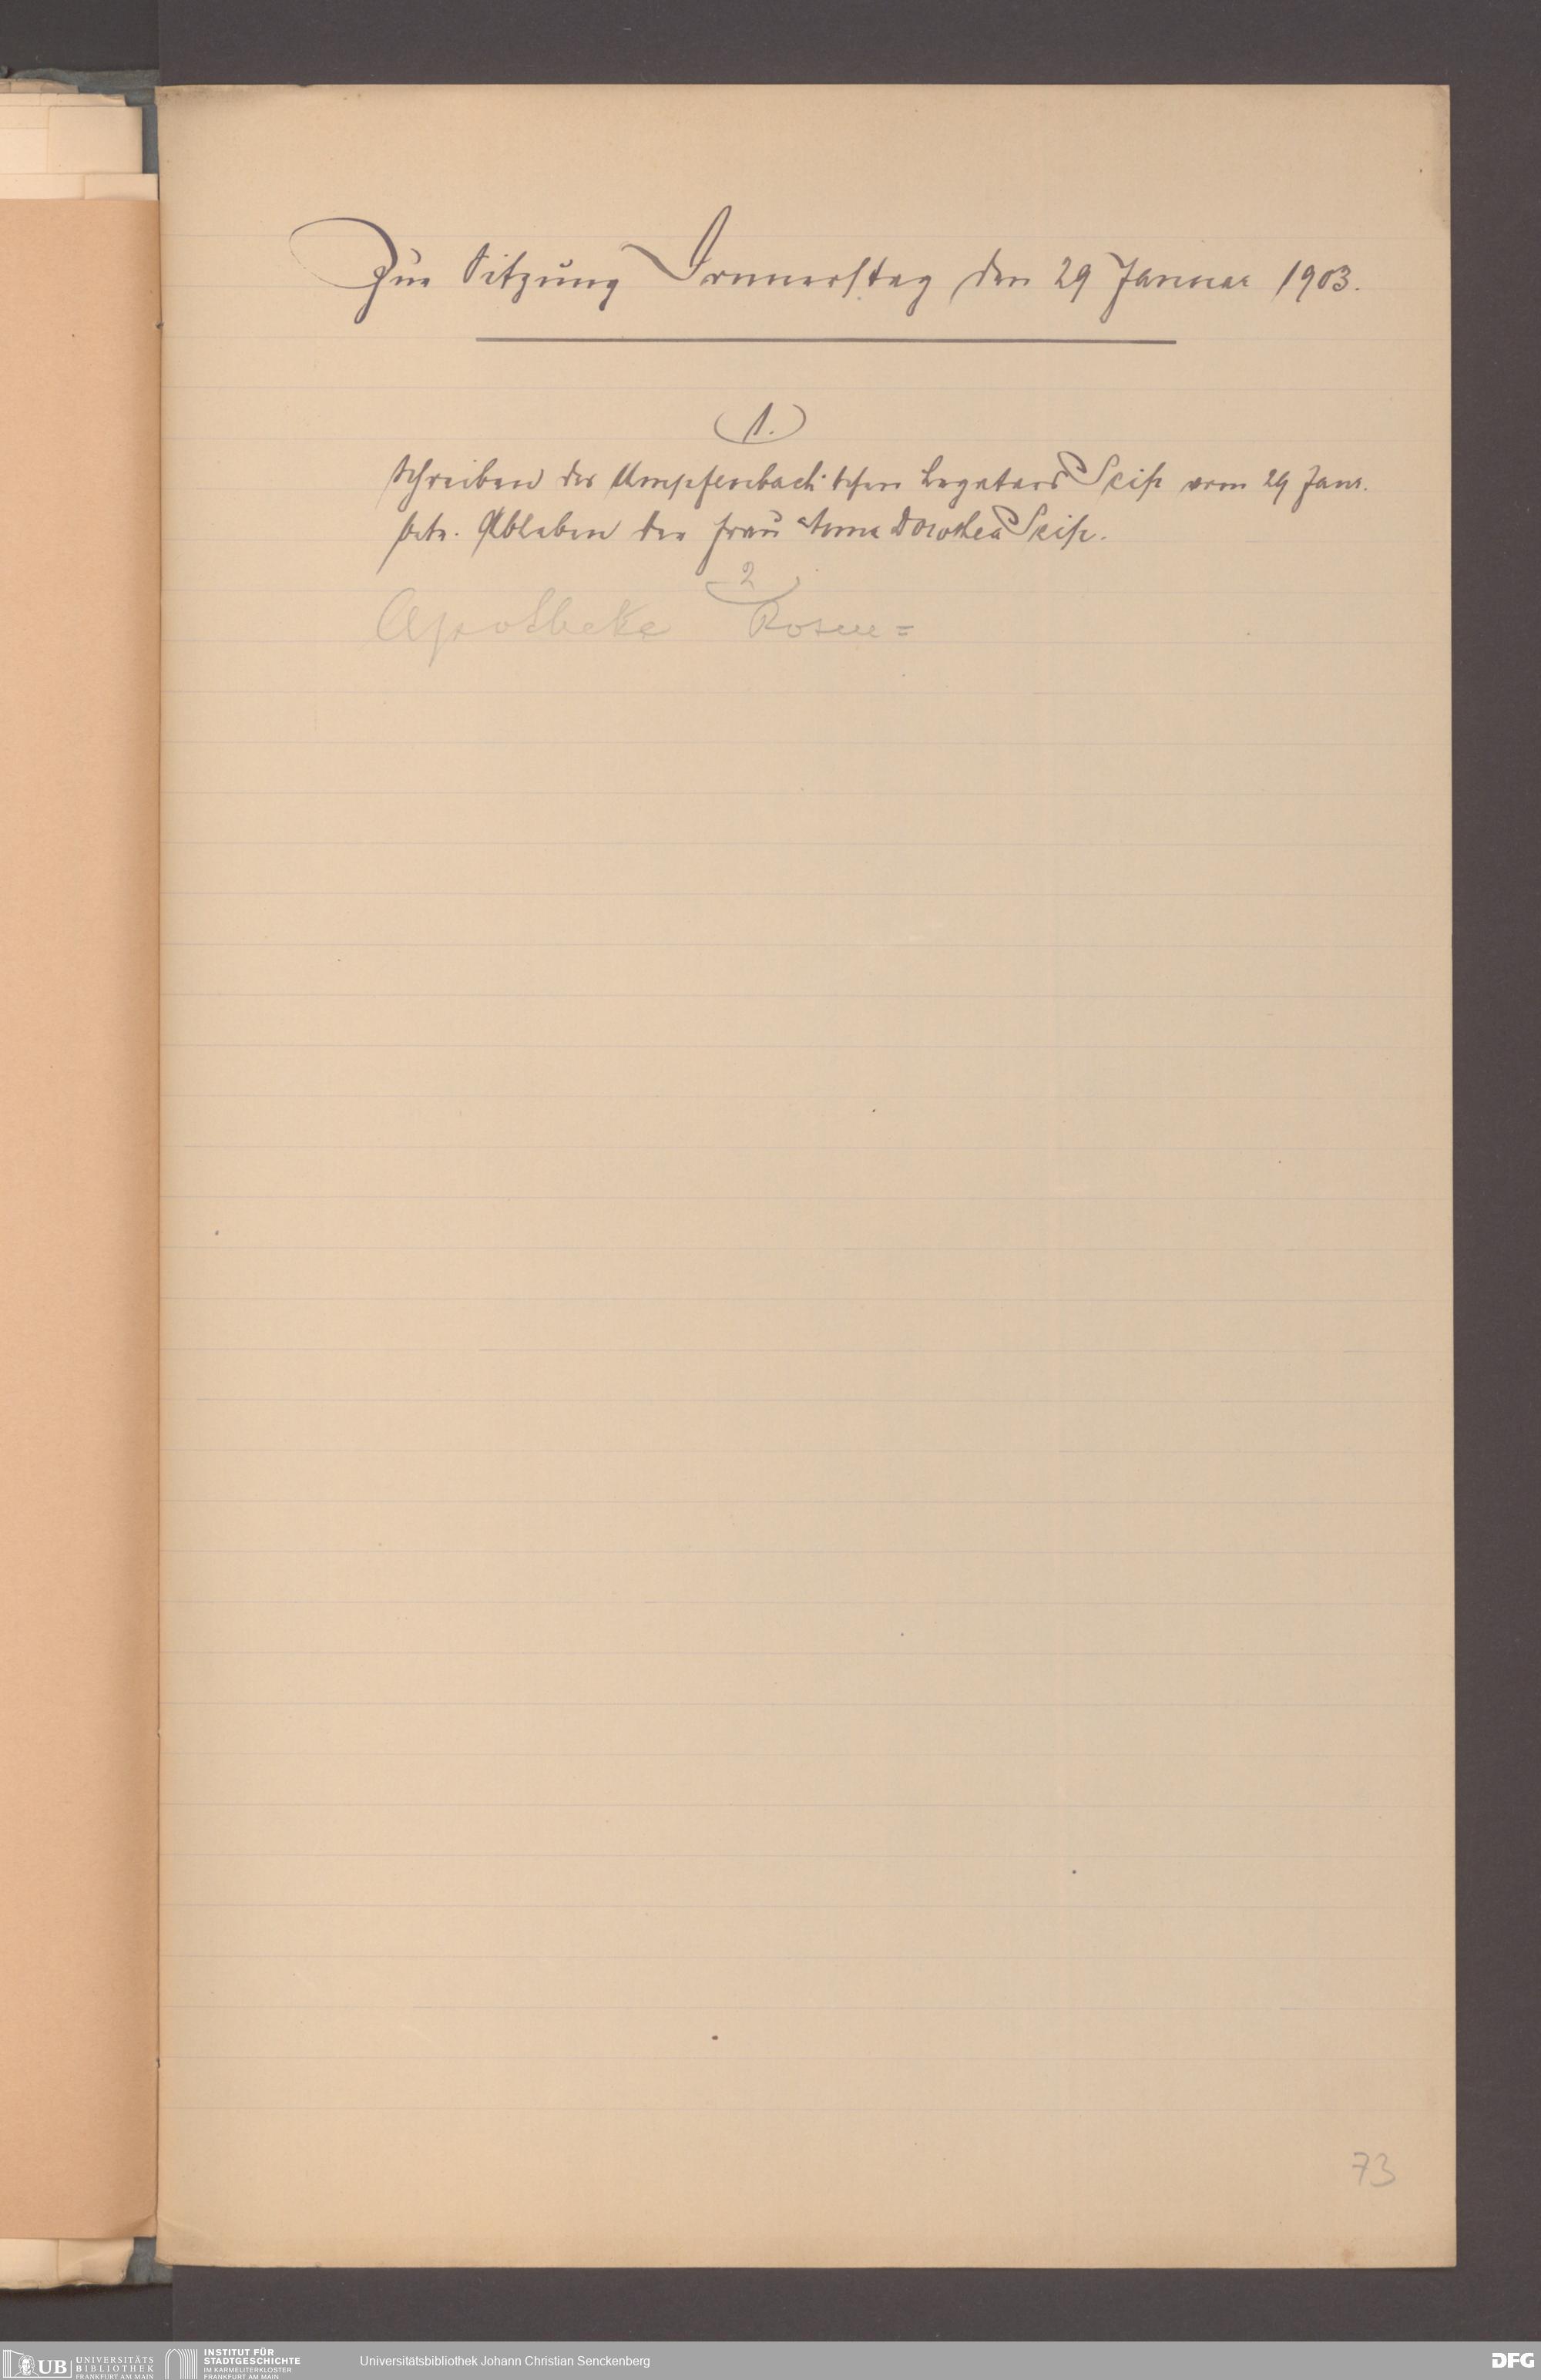 Zur Sitzung Donnerstag den 29 Januar 1903.
1.
Schreiben des Umpfenbach'schen Legatars Seiß vom 29 Janr.
betr. Ableben der Frau Anna Dorothea Seiß.
2
Apotheke Rosen=
73
UB UNIVERSITÄTS
BIBLIOTHEK
FRANKFURT AM MAIN
INSTITUT FÜR
STADTGESCHICHTE
IM KARMELITERKLOSTER
FRANKFURT AM MAIN
Universitätsbibliothek Johann Christian Senckenberg
DFG